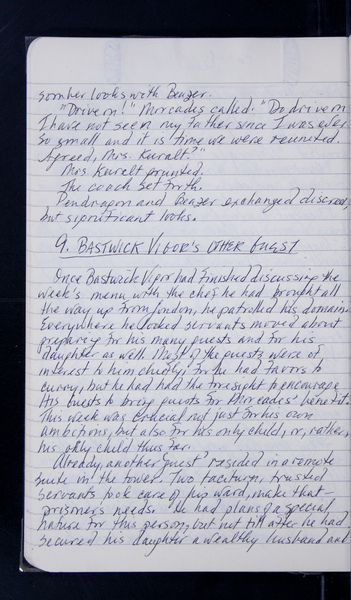 somber looks with Beazer.
"Driver!" Mircades called. "Do drive on.
I have not seen my father since I was ever
so small and it is time we were reunited.
Agreed, Mrs. Kuralt?"
Mrs Kuralt grunted.
The coach set forth.
Pendragon and Beazer exchanged discreet,
but significant looks.
9. BASTWICK VIGOR'S OTHER GUEST
Once Bastwick Vigor had finished discussing the
week's menu with the chef he had brought all
the way up from London, he patrolled his domain.
Everywhere he looked servants moved about
preparing for his many guests and for his
daughter as well. Most of the guests were of
interest to him chiefly. For he had favors to
curry, but he had had the foresight to encourage
his guests to bring guests for Mircades' benefit.
This week was crucial not just for his own
ambitions, but also for his only child, or, rather,
his only child thus far.
Already, another "guest" resided in a remote
suite in the tower. Two taciturn, trusted
servants took care of his ward, make that—
prisoner's needs. He had plans of a special
nature for this person, but not till after he had
secured his daughter a wealthy husband and